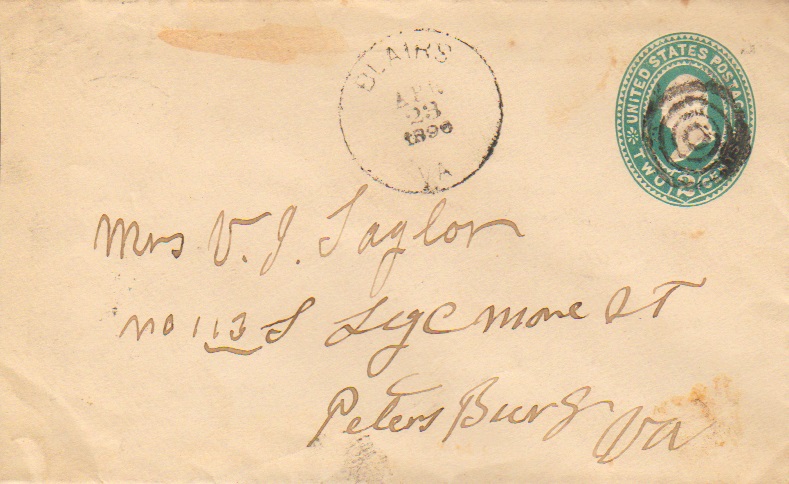 BLAIRS
APR
23
1896
VA
UNITED STATES POSTA
TWO 2 CE
Mrs V. J. Taylor
no 113 S Sycmore ST
Peters Burg Va